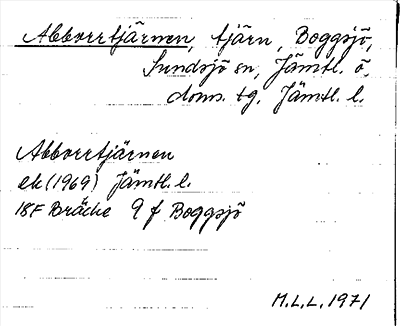 Abborrtjärnen, tjärn, Boggsjö,
Sundsjö sn, Jämtl. ö.
doms. tg. Jämtl. l.
Abborrtjärnen
ek (1969) Jämtl. l.
18F Bräcke 9 f Boggsjö
M.L.L. 1971